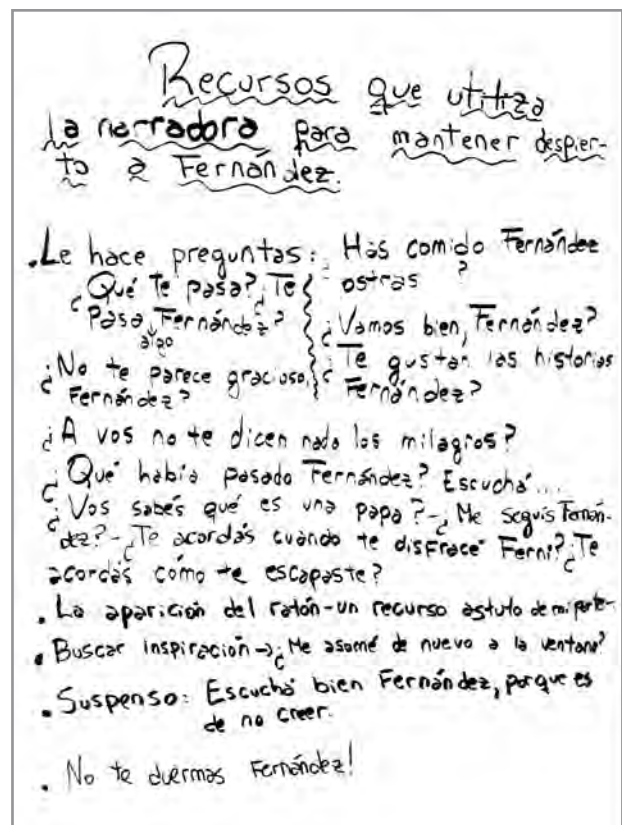 Recursos que utiliza
la narradora para mantener despier-
to a Fernández.
.Le hace preguntas:
¿Qué te pasa? ¿Te
Pasa algo Fernández?
¿No te parece gracioso,
Fernández?
Has comido Fernández
ostras ?
¿Vamos bien, Fernández?
¿Te gustan las historias
Fernández?
¿A vos no te dicen nada los milagros?
¿Qué había pasado Fernández? Escuchá...
¿Vos sabés qué es una papa?-¿Me seguís Fernán-
dez?-¿Te acordás cuando te disfracé Ferni? ¿Te
acordás cómo te escapaste?
. La aparición del ratón-un recurso astuto de mi parte-
. Buscar inspiración→¿Me asomé de nuevo a la ventana?
. Suspenso: Escuchá bien Fernández, porque es
de no creer.
. No te duermas Fernández!